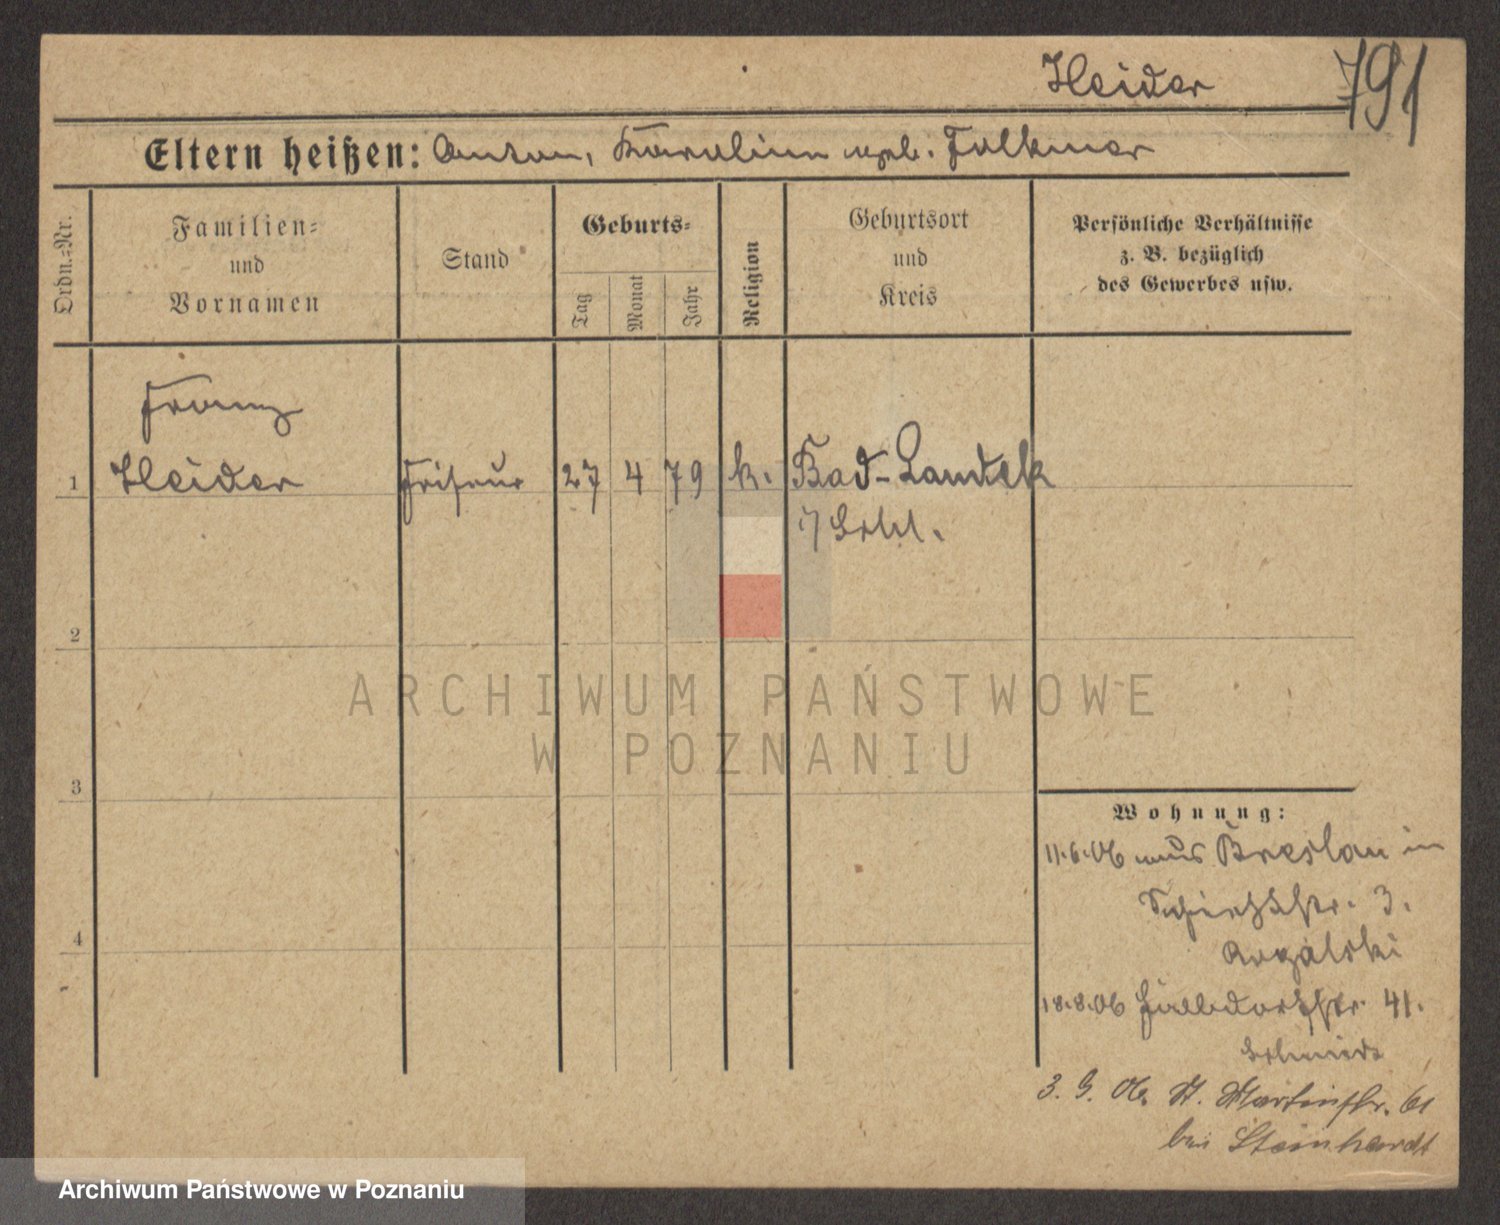 Heider
791
Eltern heißen: Anton, Karoline geb. Folkmer
Ordn.=Nr.
Familien=
und
Vornamen
Stand
Geburts=
Tag
Monat
Jahr
Religion
Geburtsort
und
Kreis
Persönliche Verhältnisse
z. B. bezüglich
des Gewerbes usw.
Franz
1 Heider Friseur 27 4 79 k. Bad-Landek
i/Schl.
2
3
4
ARCHIWUM PAŃSTWOWE
W POZNANIU
Wohnung:
11.6.06 aus Breslau in
3.
18.8.06 Halbdorfstr. 41.
Schmidt
3. 9. 06. St. Martinstr. 61
bei Steinhardt
Archiwum Państwowe w Poznaniu